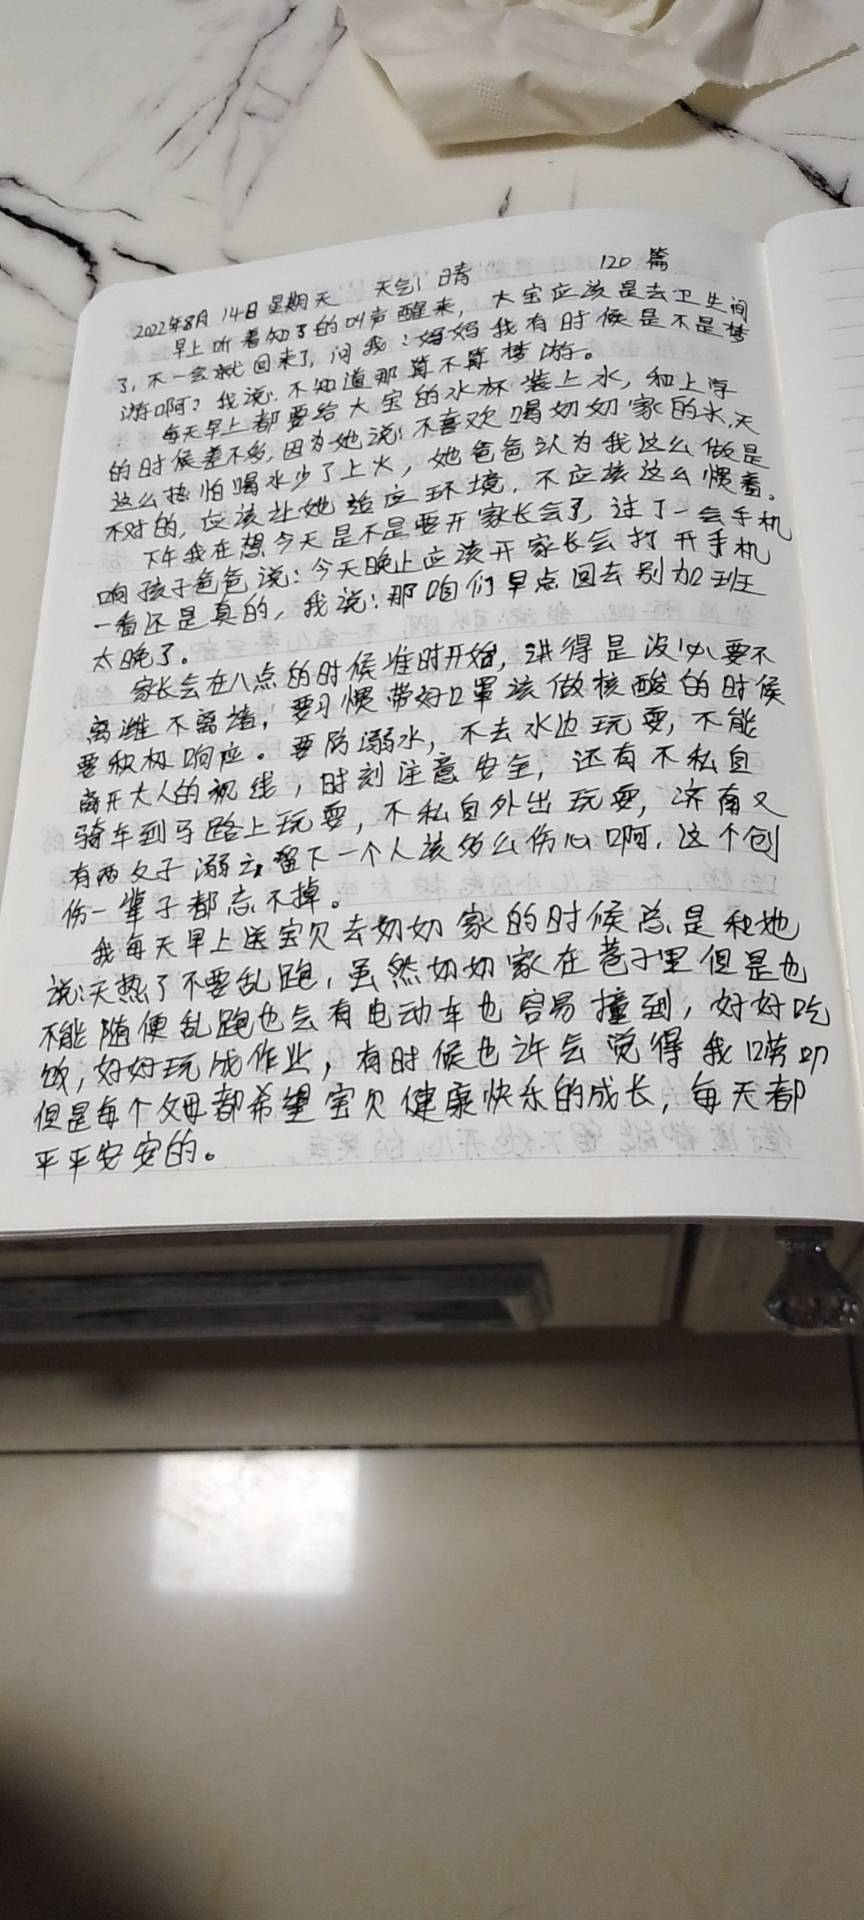 2022年8月14日 星期天 天气:晴 120篇
早上听着知了的叫声醒来,大宝应该是去卫生间
了,不一会就回来了,问我:妈妈我有时候是不是梦
游啊?我说:不知道那算不算梦游。
每天早上都要给大宝的水杯装上水,和上学
的时候差不多,因为她说:不喜欢喝奶奶家的水,天
这么热怕喝水少了上火,她爸爸认为我这么做是
不对的,应该让她适应环境,不应该这么惯着。
下午我在想今天是不是要开家长会了,过了一会手机
响孩子爸爸说:今天晚上应该开家长会打开手机
一看还是真的,我说:那咱们早点回去别加班
太晚了。
家长会在八点的时候准时开始,讲得是没必要不
离潍不离塘,要习惯带好口罩该做核酸的时候
要积极响应。要防溺水,不去水边玩耍,不能
离开大人的视线,时刻注意安全,还有不私自
骑车到马路上玩耍,不私自外出玩耍,济南又
有两父子溺亡,留下一个人该多么伤心啊,这个创
伤一辈子都忘不掉。
我每天早上送宝贝去奶奶家的时候总是和她
说:天热了不要乱跑,虽然奶奶家在巷子里但是也
不能随便乱跑也会有电动车也容易撞到,好好吃
饭,好好玩成作业,有时候也许会觉得我唠叨
但是每个父母都希望宝贝健康快乐的成长,每天都
平平安安的。